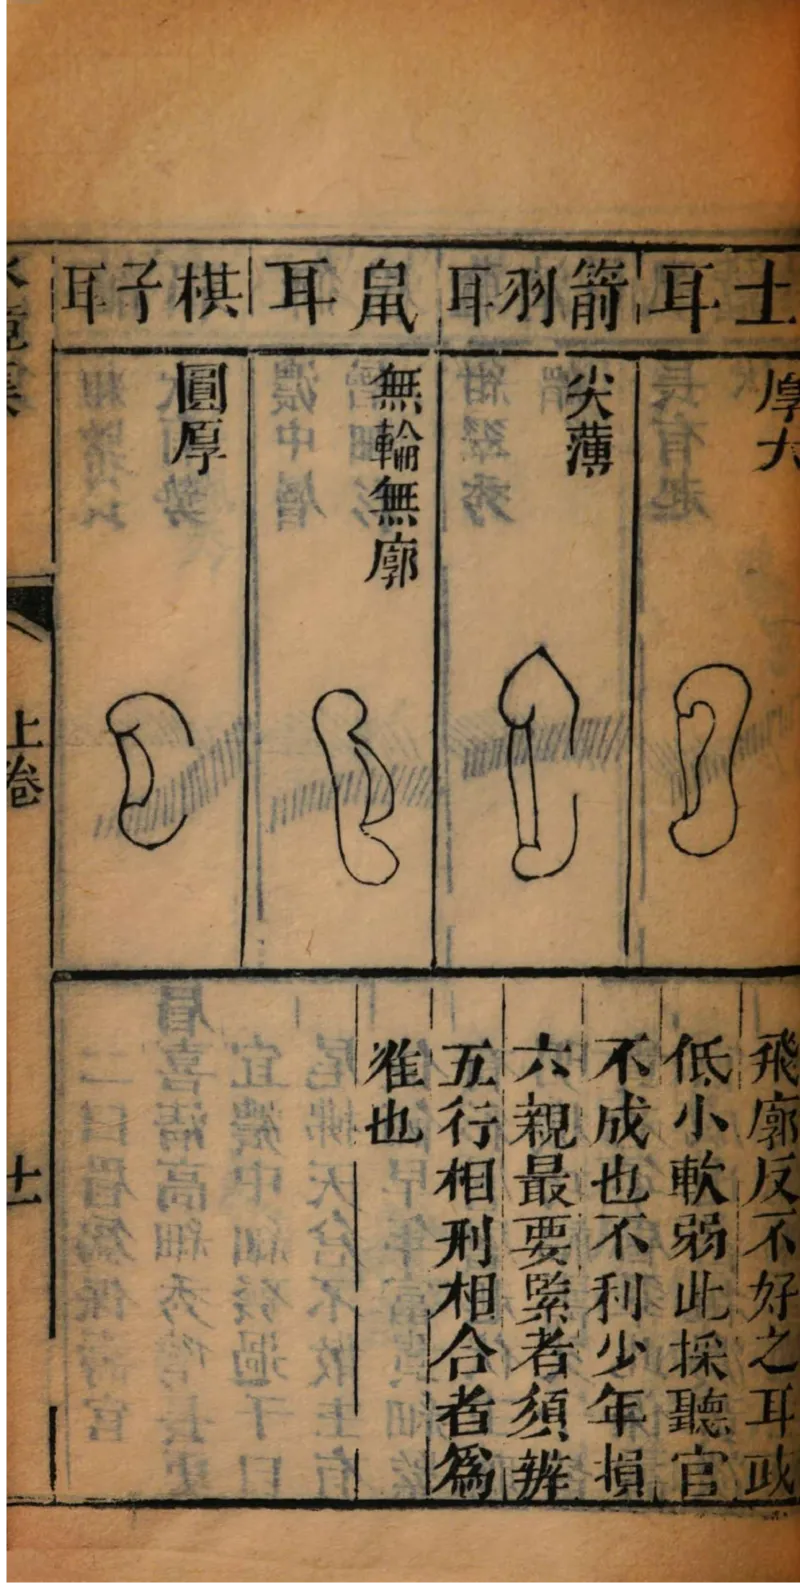 土耳
厚大
箭羽耳
尖薄
鼠耳
無輪無廓
棋子耳
圓厚
飛廓反不好之耳或
低小軟弱此採聽官
不成也不利少年損
六親最要緊者須辨
五行相刑相合者爲
准也
上卷
十一